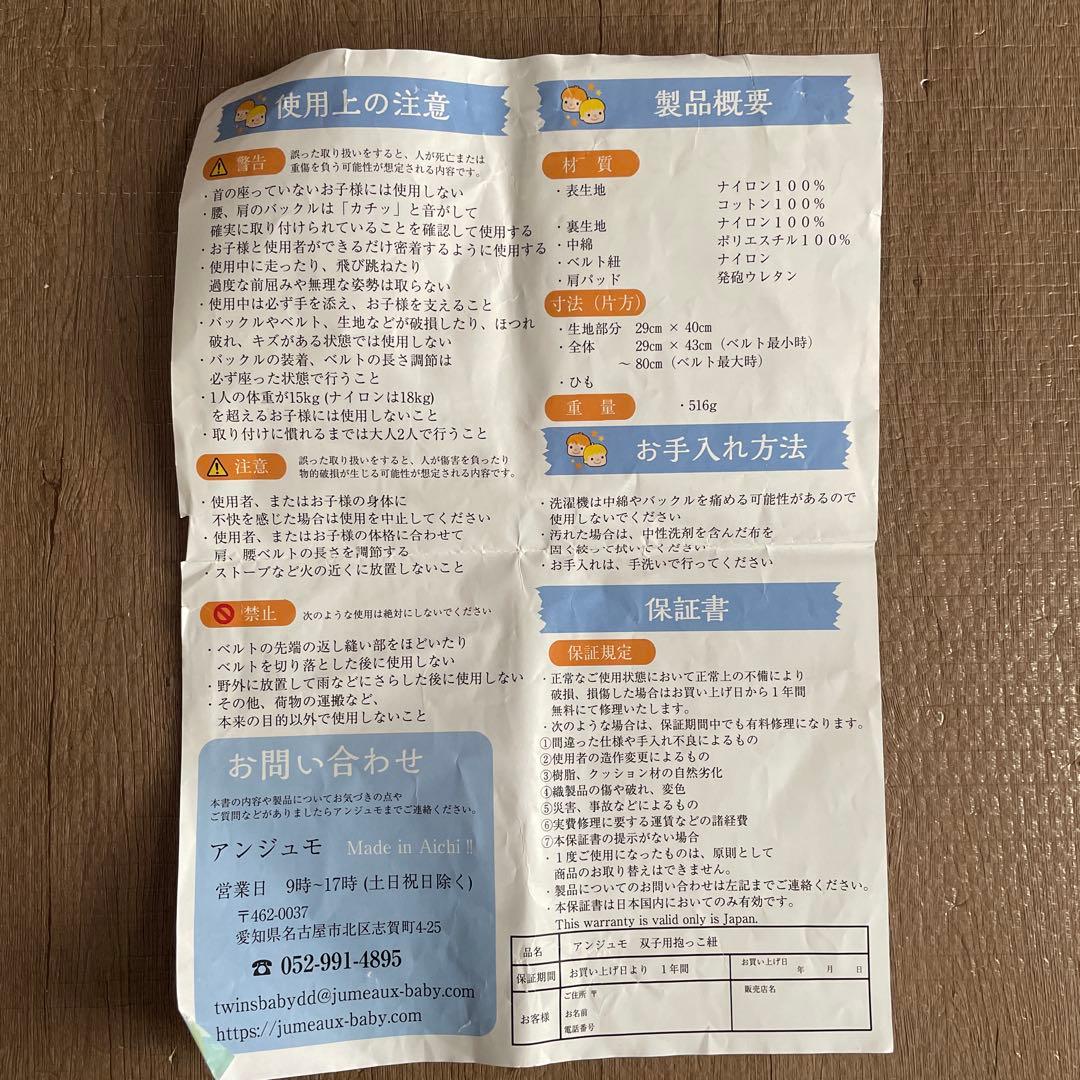 使用上の注意
警告
誤った取り扱いをすると、人が死亡または
重傷を負う可能性が想定される内容です。
・首の座っていないお子様には使用しない
・腰、肩のバックルは「カチッ」と音がして
確実に取り付けられていることを確認して使用する
・お子様と使用者ができるだけ密着するように使用する
・使用中に走ったり、飛び跳ねたり
過度な前屈みや無理な姿勢は取らない
・使用中は必ず手を添え、お子様を支えること
・バックルやベルト、生地などが破損したり、ほつれ
破れ、キズがある状態では使用しない
・バックルの装着、ベルトの長さ調節は
必ず座った状態で行うこと
・1人の体重が15kg (ナイロンは18kg)
を超えるお子様には使用しないこと
・取り付けに慣れるまでは大人2人で行うこと
注意
誤った取り扱いをすると、人が傷害を負ったり
物的破損が生じる可能性が想定される内容です。
・使用者、またはお子様の身体に
不快を感じた場合は使用を中止してください
・使用者、またはお子様の体格に合わせて
肩、腰ベルトの長さを調節する
・ストーブなど火の近くに放置しないこと
禁止
次のような使用は絶対にしないでください
・ベルトの先端の返し縫い部をほどいたり
ベルトを切り落とした後に使用しない
・野外に放置して雨などにさらした後に使用しない
・その他、荷物の運搬など、
本来の目的以外で使用しないこと
お問い合わせ
本書の内容や製品についてお気づきの点や
ご質問などがありましたらアンジュモまでご連絡ください。
アンジュモ Made in Aichi !!
営業日 9時~17時 (土日祝日除く)
〒462-0037
愛知県名古屋市北区志賀町4-25
☎ 052-991-4895
twinsbabydd@jumeaux-baby.com
https://jumeaux-baby.com
製品概要
材 質
・表生地 ナイロン100%
コットン100%
・裏生地 ナイロン100%
・中綿 ポリエスチル100%
・ベルト紐 ナイロン
・肩パッド 発砲ウレタン
寸法（片方）
・生地部分 29㎝ × 40㎝
・全体 29㎝ × 43㎝（ベルト最小時）
～ 80㎝（ベルト最大時）
・ひも
重 量 ・516g
お手入れ方法
・洗濯機は中綿やバックルを痛める可能性があるので
使用しないでください
・汚れた場合は、中性洗剤を含んだ布を
固く絞って拭いてください
・お手入れは、手洗いで行ってください
保証書
保証規定
・正常なご使用状態において正常上の不備により
破損、損傷した場合はお買い上げ日から１年間
無料にて修理いたします。
・次のような場合は、保証期間中でも有料修理になります。
①間違った仕様や手入れ不良によるもの
②使用者の造作変更によるもの
③樹脂、クッション材の自然劣化
④織製品の傷や破れ、変色
⑤災害、事故などによるもの
⑥実費修理に要する運賃などの諸経費
⑦本保証書の提示がない場合
・１度ご使用になったものは、原則として
商品のお取り替えはできません。
・製品についてのお問い合わせは左記までご連絡ください。
・本保証書は日本国内においてのみ有効です。
This warranty is valid only is Japan.
品名 アンジュモ 双子用抱っこ紐
保証期間 お買い上げ日より １年間 お買い上げ日
年 月 日
お客様 ご住所 〒 販売店名
お名前
電話番号